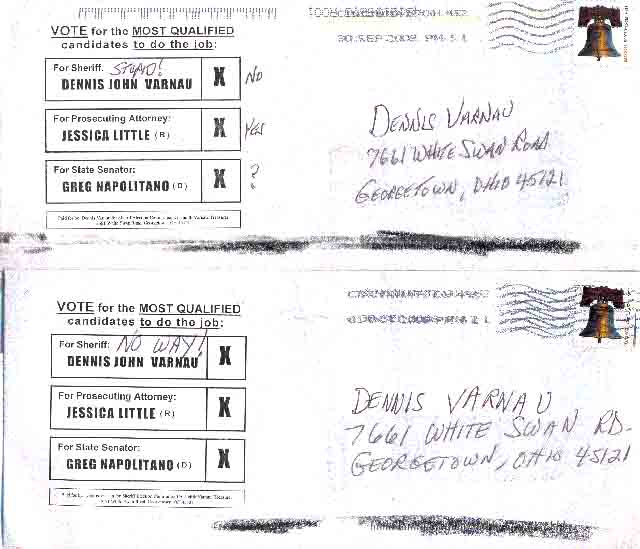 VOTE for the MOST QUALIFIED
candidates to do the job:
For Sheriff: STUPID!
DENNIS JOHN VARNAU X NO
For Prosecuting Attorney:
JESSICA LITTLE (R) X YES
For State Senator:
GREG NAPOLITANO (D) X ?
30 SEP 2008 PM
DENNIS VARNAU
7661 WHITE SWAN ROAD
GEORGETOWN, OHIO 45121
VOTE for the MOST QUALIFIED
candidates to do the job:
For Sheriff: NO WAY!
DENNIS JOHN VARNAU X
For Prosecuting Attorney:
JESSICA LITTLE (R) X
For State Senator:
GREG NAPOLITANO (D) X
DENNIS VARNAU
7661 WHITE SWAN RD.
GEORGETOWN, OHIO 45121